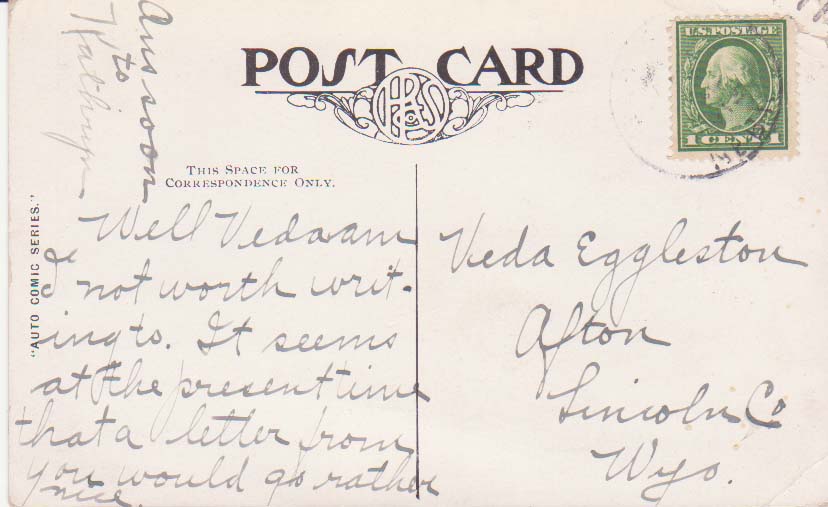 POST CARD
U.S. POSTAGE
1 CENT 1
THIS SPACE FOR
CORRESPONDENCE ONLY.
"AUTO COMIC SERIES."
Ans soon
to
Kathryn
Well Veda am
I not worth writ-
ing to. It seems
at the present time
that a letter from
you would go rather
nice.
Veda Eggleston
Afton
Lincoln Co
Wyo.